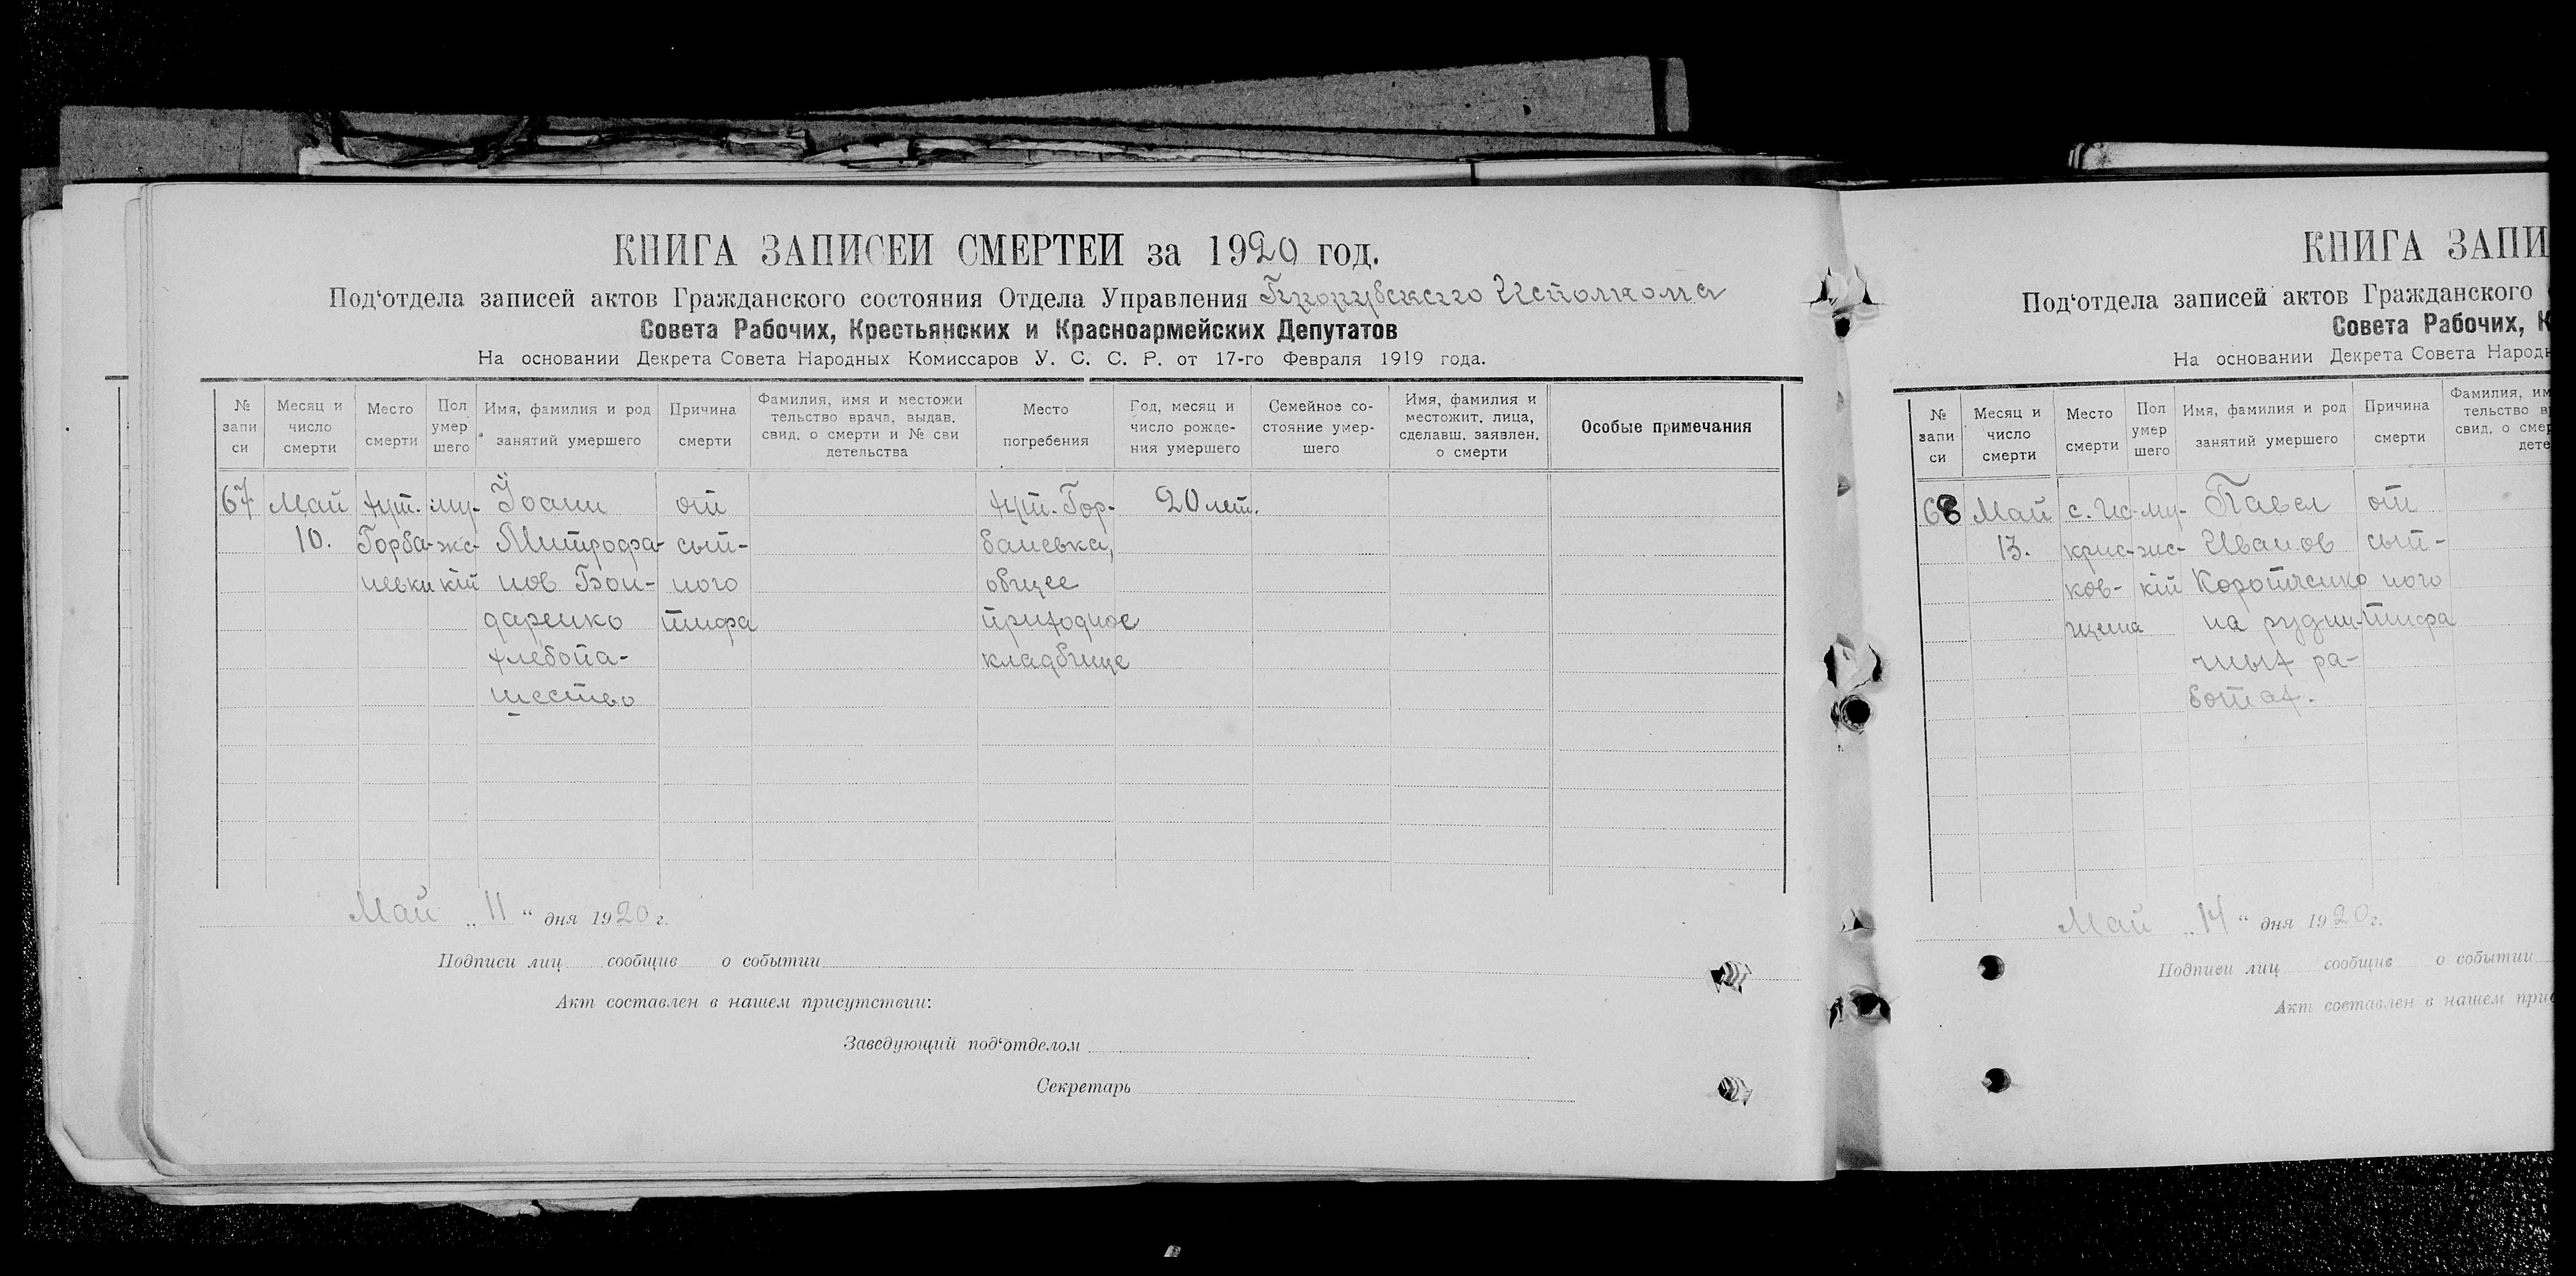 КНИГА ЗАПИСЕЙ СМЕРТЕЙ за 1920 год.
Под‘отдела записей актов Гражданского состояния Отдела Управления Исполкома
Совета Рабочих, Крестьянских и Красноармейских Депутатов
На основании Декрета Совета Народных Комиссаров У. С. С. Р. от 17-го Февраля 1919 года.
№ запи си
Месяц и число смерти
Место смерти
Пол умер шего
Имя, фамилия и род занятий умершего
Причина смерти
Фамилия, имя и местожи тельство врача, выдав. свид. о смерти и № сви детельства
Место погребения
Год, месяц и число рожде- ния умершего
Семейное со- стояние умер- шего
Имя, фамилия и местожит. лица, сделавш. заявлен. о смерти
Особые примечания
67 Май хут. му- Іоанн от хут. Гор- 20 лет.
10. Горба- жс- Митрофа- сып- баневка,
невки кій нов Бон- ного общее
даренко тифа приходное
хлебопа- кладбище
шество
Май „ 11 “ дня 1920 г.
Подписи лиц сообщив о событии
Акт составлен в нашем присутствии:
Заведующий под‘отделом
Секретарь
КНИГА ЗАПИ
Под‘отдела записей актов Гражданского
Совета Рабочих, К
На основании Декрета Совета Народн
№ запи си
Месяц и число смерти
Место смерти
Пол умер шего
Имя, фамилия и род занятий умершего
Причина смерти
Фамилия, им
тельство в
свид. о смер
дете
68 Май с. Ис- му- Павел от
13. крис- жс- Иванов сып-
ков- кій Коротченко ного
щина на рудни- тифа
чных ра-
ботах.
Май „ 14 “ дня 1920 г.
Подписи лиц сообщив о событии
Акт составлен в нашем прис